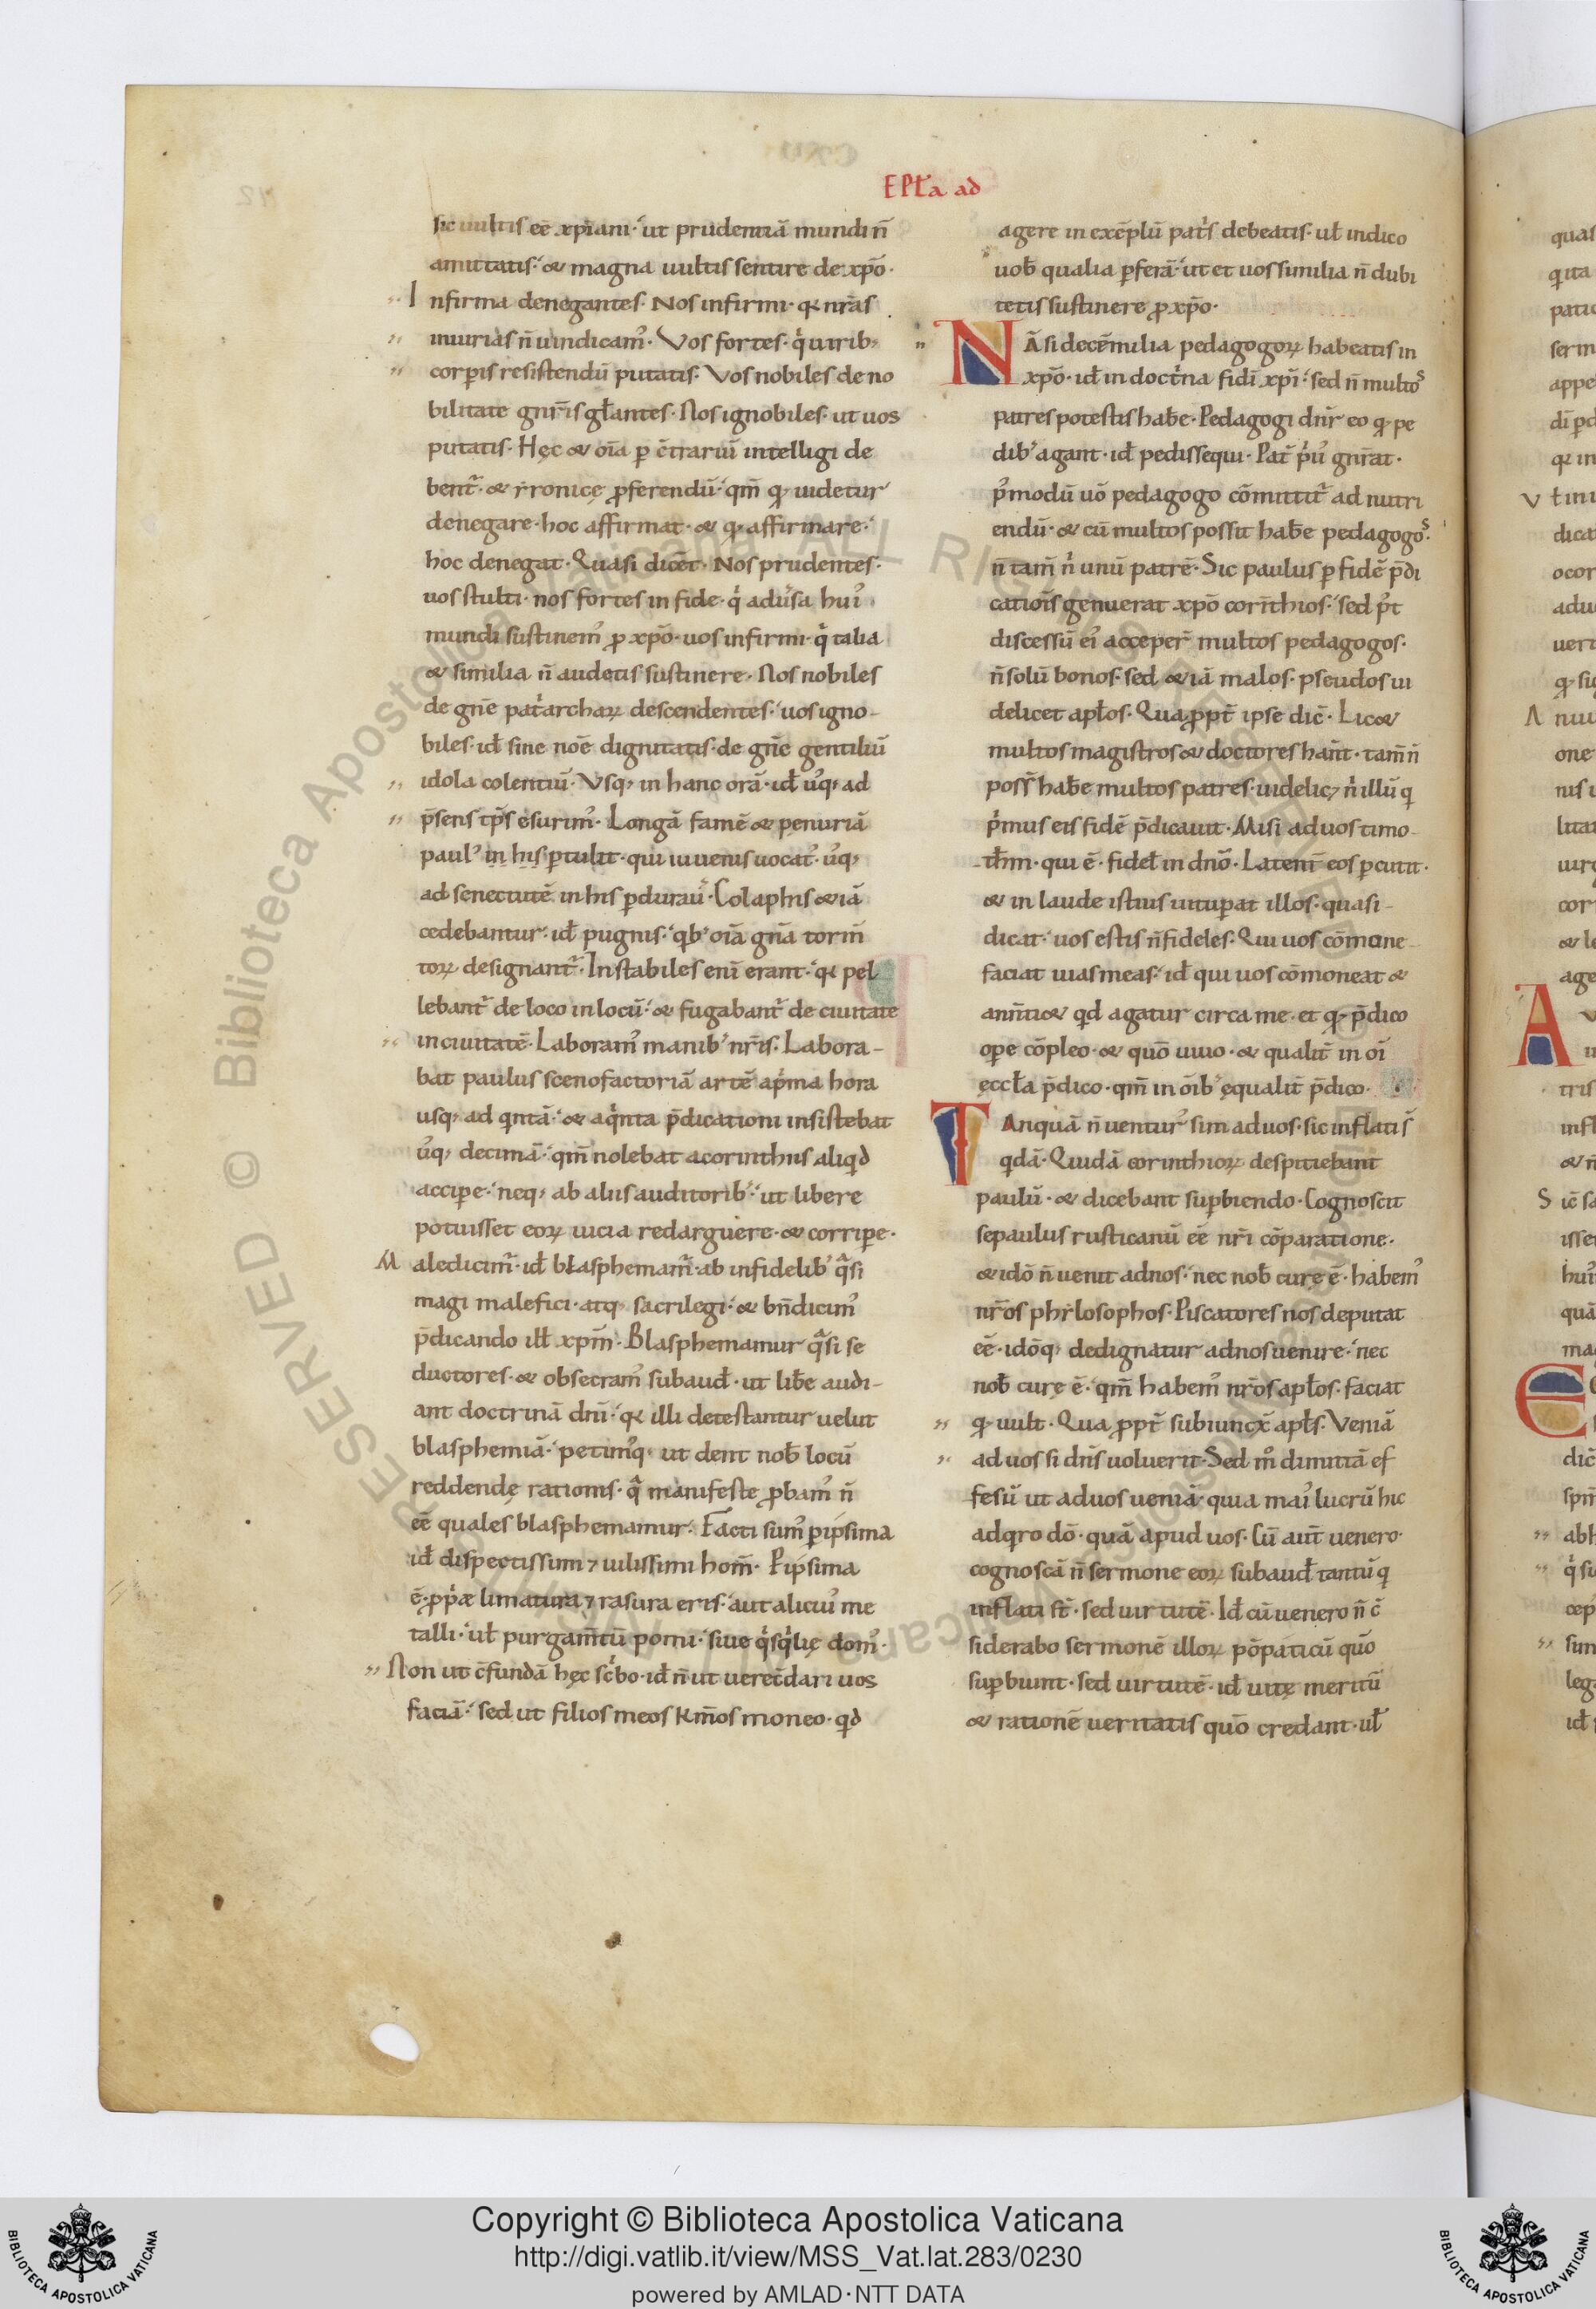 EPƚa ad
sic uultis eē xp̄iani· ut prudentiā mundi n̄
amittatis· & magna uultis sentire de xp̄o·
Infirma denegantes· Nos infirmi· qꝛ nr̄as
iniurias n̄ uindicam᾿· Vos fortes· qͥ uirib;
corꝑis resistendū putatis· Vos nobiles de no
bilitate gnr̄is gƚantes· Nos ignobiles· ut uos
putatis· Hęc & oīa ꝑ c̄trariū intelligi de
bent᷑· & yronicę ꝓferendū· qm̄ qꝫ uidetur
denegare· hoc affirmat· & qꝫ affirmare·
hoc denegat· Quasi dicēt· Nos prudentes·
uos stulti· nos fortes in fide· qͥ adu᷑sa hui᾿
mundi sustinem᾿ ꝓ xp̄o· uos infirmi· qͥ talia
& similia n̄ audetis sustinere· Nos nobiles
de gn̄e patͥarchaꝝ descendentes· uos igno-
biles· id ̄ sine noē dignitatis· de gn̄e gentiliū
idola colentiū· Vsqꝫ in hanc orā· id ̄ u᾿qꝫ ad
p̄sens tp̄s esurim᾿· Longā famē & penuriā
paul᾿ in his ꝑtulit· qui iuuenis uocat᾿· u᾿qꝫ
ad senectutē in his ꝑdurau᷑· Colaphis & iā
cedebantur· id ̄ pugnis· qb᾿ oīa gn̄a torm̄
toꝝ designant᷑· Instabiles enī erant· qꝛ pel
lebant᷑ de loco in locū· & fugabant᷑ de ciuitate
in ciuitatē· Laboram᾿ manib᾿ nr̄is· Labora-
bat paulus scenofactoriā artē a pͥma hora
usqꝫ ad qͥntā· & a qͥnta p̄dicationi insistebat
u᾿qꝫ decimā· qm̄ nolebat a corinthiis aliqd
acciꝑe· neqꝫ ab aliis auditorib᾿· ut libere
potuisset eoꝝ uicia redarguere· & corriꝑe·
Maledicim᷑· id ̄ bƚasphemam᷑· ab infidelib᾿ qͣsi
magi malefici· atqꝫ sacrilegi· & bn̄dicim᾿
p̄dicando iƚƚ xpm̄· Blasphemamur qͣsi se
ductores· & obsecram᾿ subaud ̄· ut liƀe audi-
ant doctrinā dn̄i· qꝛ illi detestantur uelut
blasphemiā· petim᾿qꝫ ut dent noƀ locū
reddendę rationis· qͣ manifeste ꝓbam᾿ n̄
eē quales blasphemamur· Facti sum᾿ ꝑipsima
id ̄ dispectissimi ⁊ uilissimi hom̄· Ꝑipsima
ē· ꝓpͥæ limatura ⁊ rasura eris· aut alicui᾿ me
talli· uƚ purgam̄tū pomi· siue qͥsqͥlię dom᾿·
Non ut c̄fundā hęc scͥbo· id ̄ n̄ ut uerec̄dari uos
faciā· sed ut filios meos km̄os moneo· qd
agere in exēplū patͥs debeatis· uƚ indico
uoƀ qualia ꝑferā· ut et uos similia n̄ dubi
tetis sustinere ꝓ xp̄o·
Nā si decē milia pedagogoꝝ habeatis in
xp̄o· id ̄ in doctͥna fidī xp̄i· sed n̄ multos
patres potestis haƀe· Pedagogi dn̄r eo qꝫ pe
dib᾿ agant· id ̄ pedissequi· Pat̄ pͥu᾿ gnr̄at·
pͦmodū uō pedagogo cōmittit᷑ ad nutri
endū· & cū multos possit haƀe pedagogos·
n̄ tam̄ nͥ unū patrē· Sic paulus ꝑ fidē p̄di
catiōis genuerat xp̄o corīthios· sed p᾿t
discessū ei᾿ acceper̄ multos pedagogos·
n̄ solū bonos· sed & iā malos· pseudos ui
delicet apƚos· Qua ꝓpt̄ ipse dic̄· Lic&
multos magistros & doctores han̄t· tam̄ n̄
poss̄ haƀe multos patres· uidelicꝫ nͥ illū q
pͥmus eis fidē p̄dicauit· Misi ad uos timo-
tħm· qui ē· fideƚ in dn̄o· Latent̄ eos ꝑcutit·
& in laude istius uituꝑat illos· quasi-
dicat· uos estis n̄ fideles· Qui uos cōmone-
faciat uias meas· id ̄ qui uos cōmoneat &
ann̄ti& qd agatur circa me· et qꝫ p̄dico
oꝑe cōpleo· & quō uiuo· & qualit̄ in oī
eccƚa p̄dico· qm̄ in oīb᾿ equalit̄ p̄dico·
Tanquā n̄ uentur᾿ sim ad uos· sic inflati s̄
qdā· Quidā corinthioꝝ despitiebant
paulū· & dicebant suꝑbiendo· Cognoscit
se paulus rusticanū eē nr̄i cōparatione·
& idō n̄ uenit ad nos· nec noƀ curę ē· habem᾿
nr̄os philosophos· Piscatores nos deputat
eē· idōqꝫ dedignatur ad nos uenire· nec
noƀ curę ē· qm̄ habem᾿ nr̄os apƚos· faciat
qꝫ uult· Qua ꝓpt̄ subiuncx̄ apƚs· Veniā
ad uos si dn̄s uoluerit· Sed m᾿ dimittā ef
fesū ut ad uos ueniā· quia mai᾿ lucrū hic
adqro dō· quā apud uos· Cū aut̄ uenero·
cognoscā n̄ sermone eoꝝ subaud ̄ tantū q
inflati st̄· sed uirtutē· Id ̄ cū uenero n̄ c̄
siderabo sermonē illoꝝ pōpaticū quō
suꝑbiunt· sed uirtutē· id ̄ uitę meritū
& rationē ueritatis quō credant· uƚ
Copyright © Biblioteca Apostolica Vaticana
http://digi.vatlib.it/view/MSS_Vat.lat.283/0230
powered by AMLAD·NTT DATA